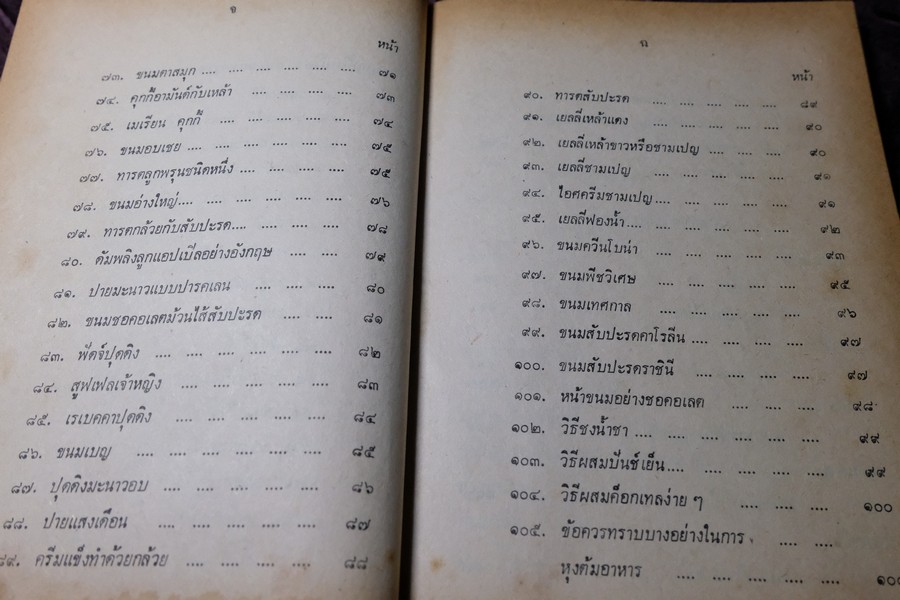 จ
หน้า
๗๓. ขนมตาสมุก .... .... .... .... .... .... ๗๑
๗๔. คุกกี้อามันต์กับเหล้า .... .... .... .... ๗๓
๗๕. เมเรียน คุกกี้ .... .... .... .... .... ๗๔
๗๖. ขนมอบเชย .... .... .... .... .... ๗๕
๗๗. ทารตลูกพรุนชนิดหนึ่ง .... .... .... .... ๗๕
๗๘. ขนมอ่างใหญ่.... .... .... .... .... ๗๖
๗๙. ทารตกล้วยกับสับปะรด.... .... .... .... ๗๘
๘๐. ดัมพลิงลูกแอปเปิลอย่างอังกฤษ .... .... ๗๙
๘๑. ปายมะนาวแบบปารคเลน .... .... .... ๘๐
๘๒. ขนมชอคอเลตม้วนไส้สับปะรด .... .... ๘๑
๘๓. ฟัดจ์ปุดดิง .... .... .... .... .... ๘๒
๘๔. สูฟเฟลเจ้าหญิง .... .... .... .... ๘๓
๘๕. เรเบคคาปุดดิง .... .... .... .... .... ๘๔
๘๖. ขนมเบญ .... .... .... .... .... ๘๕
๘๗. ปุดดิงมะนาวอบ .... .... .... .... .... ๘๖
๘๘. ปายแสงเดือน .... .... .... .... .... ๘๗
๘๙. ครีมแข็งทำด้วยกล้วย .... .... .... .... ๘๘
ฉ
หน้า
๙๐. ทารตสับปะรด .... .... .... .... ๘๙
๙๑. เยลลี่เหล้าแดง .... .... .... .... ๙๐
๙๒. เยลลี่เหล้าขาวหรือชามเปญ .... .... .... ๙๐
๙๓. เยลลี่ชามเปญ .... .... .... .... ๙๑
๙๔. ไอศครีมชามเปญ.... .... .... .... ๙๑
๙๕. เยลลี่ฟองน้ำ .... .... .... .... ๙๒
๙๖. ขนมควีนโบน่า .... .... .... .... ๙๓
๙๗. ขนมพีชวิเศษ .... .... .... .... ๙๕
๙๘. ขนมเทศกาล .... .... .... .... ๙๖
๙๙. ขนมสับปะรดคาโรลีน .... .... .... .... ๙๗
๑๐๐. ขนมสับปะรดราชินี .... .... .... .... ๙๗
๑๐๑. หน้าขนมอย่างชอคอเลต .... .... .... ๙๘
๑๐๒. วิธีชงน้ำชา .... .... .... .... .... ๙๙
๑๐๓. วิธีผสมปันช์เย็น.... .... .... .... .... ๙๙
๑๐๔. วิธีผสมค็อกเทลง่าย ๆ .... .... .... ๑๐๐
๑๐๕. ข้อควรทราบบางอย่างในการ .... ....
หุงต้มอาหาร .... .... .... .... ....